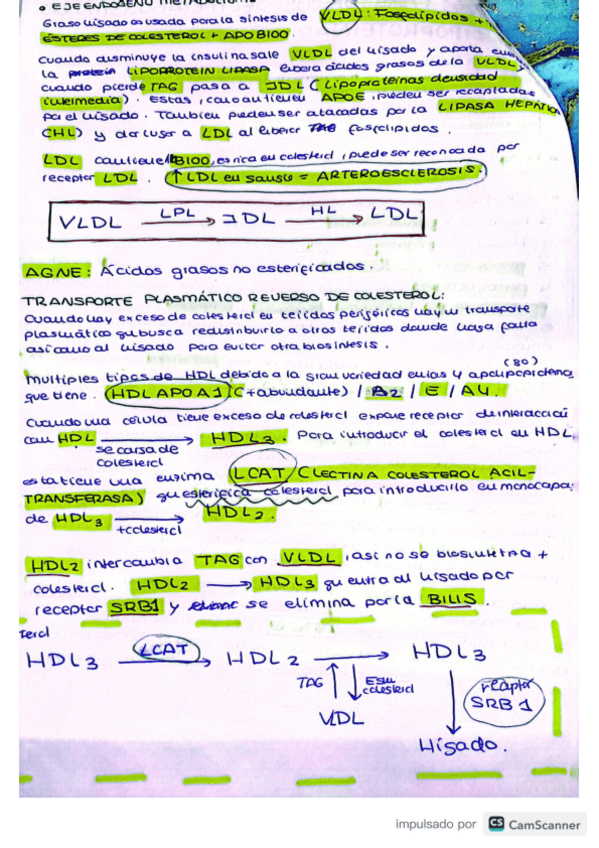 • EJE ENDÓGENO METABOLISMO
Grasa hígado es usada para la síntesis de VLDL: Fosfolípidos +
ÉSTERES DE COLESTEROL + APO B100.
Cuando disminuye la insulina sale VLDL del hígado y aporta
la LIPOPROTEIN LIPASA libera ácidos grasos de la VLDL,
cuando pierde TAG pasa a IDL (Lipoproteínas densidad
intermedia). Estas, como contienen APOE, pueden ser recaptadas
por el hígado. También pueden ser atacadas por la LIPASA HEPÁTICA
(HL) y dar lugar a LDL al liberar TAG fosfolípidos.
LDL contiene B100, es rica en colesterol, puede ser reconocida por
receptor LDL. ↑LDL en sangre = ARTEROESCLEROSIS.
VLDL LPL → IDL HL → LDL
AGNE: Ácidos grasos no esterificados.
TRANSPORTE PLASMÁTICO REVERSO DE COLESTEROL:
Cuando hay exceso de colesterol en tejidos periféricos hay un transporte
plasmático que busca redistribuirlo a otros tejidos donde haga falta
así como al hígado para evitar otra biosíntesis.
(80)
Multiples tipos de HDL debido a la gran variedad en las y apolipoproteína
que tiene. HDL APO A1 (+abundante) / B2 / E / A4.
Cuando una célula tiene exceso de colesterol expone receptor de interacción
con HDL → HDL3. Para introducir el colesterol en HDL,
se carga de
colesterol
esta tiene una enzima LCAT (LECTINA COLESTEROL ACIL-
TRANSFERASA) que esterifica colesterol para introducirlo en monocapa
de HDL3 → HDL2.
+colesterol
HDL2 intercambia TAG con VLDL, así no se biosintetiza +
colesterol. HDL2 → HDL3 que entra al hígado por
receptor SRB1 y se elimina por la BILIS.
HDL3 LCAT → HDL2 → HDL3
TAG ↑ ↓ Ester colesterol
VLDL
receptor
SRB1
Hígado.
impulsado por CS CamScanner